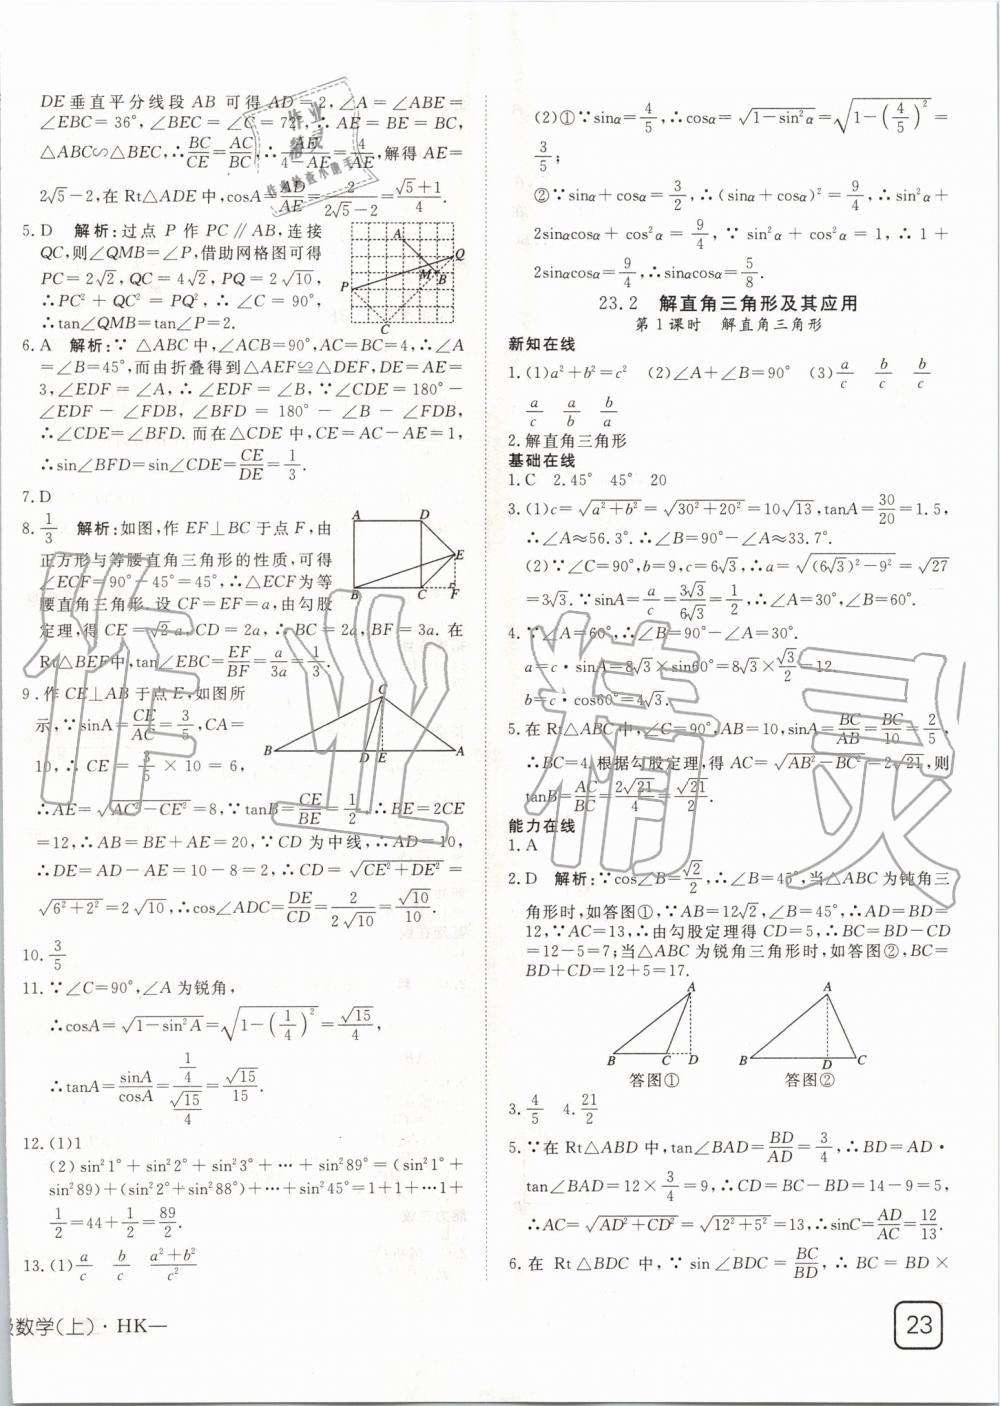 DE垂直平分线段 AB 可得 AD=2,∠A=∠ABE=
∠EBC=36°,∠BEC=∠C=72°,∴AE=BE=BC,
△ABC∽△BEC,∴BC/CE=AC/BC,∴AE/(4-AE)=4/AE,解得 AE=
2√5-2,在 Rt△ADE 中,cosA=AD/AE=2/(2√5-2)=(√5+1)/4.
5.D 解析:过点 P 作 PC∥AB,连接
QC,则∠QMB=∠P,借助网格图可得
PC=2√2,QC=4√2,PQ=2√10,
∴PC²+QC²=PQ²,∴∠C=90°,
∴tan∠QMB=tan∠P=2.
A
Q
M
B
P
C
6.A 解析:∵△ABC中,∠ACB=90°,AC=BC=4,∴∠A
=∠B=45°,而由折叠得到△AEF≌△DEF,DE=AE=
3,∠EDF=∠A,∴∠EDF=∠B,∵∠CDE=180°-
∠EDF-∠FDB,∠BFD=180°-∠B-∠FDB,
∴∠CDE=∠BFD.而在△CDE中,CE=AC-AE=1,
∴sin∠BFD=sin∠CDE=CE/DE=1/3.
7.D
8.1/3 解析:如图,作 EF⊥BC于点 F,由
正方形与等腰直角三角形的性质,可得
∠ECF=90°-45°=45°,∴△ECF为等
腰直角三角形.设 CF=EF=a,由勾股
定理,得 CE=√2a,CD=2a,∴BC=2a,BF=3a.在
Rt△BEF中,tan∠EBC=EF/BF=a/3a=1/3.
A D
E
B C F
9.作CE⊥AB于点E,如图所
示,∵sinA=CE/AC=3/5,CA=
10,∴CE=3/5×10=6,
C
B D E A
∴AE=√(AC²-CE²)=8,∵tanB=CE/BE=1/2,∴BE=2CE
=12,∴AB=BE+AE=20,∵CD 为中线,∴AD=10,
∴DE=AD-AE=10-8=2,∴CD=√(CE²+DE²)=
√(6²+2²)=2√10,∴cos∠ADC=DE/CD=2/(2√10)=√10/10.
10.3/5
11.∵∠C=90°,∠A为锐角,
∴cosA=√(1-sin²A)=√(1-(1/4)²)=√15/4,
∴tanA=sinA/cosA=(1/4)/(√15/4)=√15/15.
12.(1)1
(2)sin²1°+sin²2°+sin²3°+…+sin²89°=(sin²1°+
sin²89)+(sin²2°+sin²88°)+…+sin²45°=1+1+…1+
1/2=44+1/2=89/2.
13.(1)a/c b/c (a²+b²)/c²
(2)①∵sinα=4/5,∴cosα=√(1-sin²α)=√(1-(4/5)²)=
3/5;
②∵sinα+cosα=3/2,∴(sinα+cosα)²=9/4,∴sin²α+
2sinαcosα+cos²α=9/4,∵sin²α+cos²α=1,∴1+
2sinαcosα=9/4,∴sinαcosα=5/8.
23.2 解直角三角形及其应用
第1课时 解直角三角形
新知在线
1.(1)a²+b²=c² (2)∠A+∠B=90° (3)a/c b/c b/c
a/c a/b b/a
2.解直角三角形
基础在线
1.C 2.45° 45° 20
3.(1)c=√(a²+b²)=√(30²+20²)=10√13,tanA=30/20=1.5,
∴∠A≈56.3°.∴∠B=90°-∠A≈33.7°.
(2)∵∠C=90°,b=9,c=6√3,∴a=√((6√3)²-9²)=√27
=3√3.∵sinA=a/c=3√3/6√3=1/2,∴∠A=30°,∴∠B=60°.
4.∵∠A=60°,∴∠B=90°-∠A=30°.
a=c·sinA=8√3×sin60°=8√3×√3/2=12.
b=c·cos60°=4√3.
5.在Rt△ABC中,∠C=90°,AB=10,sinA=BC/AB=BC/10=2/5,
∴BC=4,根据勾股定理,得 AC=√(AB²-BC²)=2√21,则
tanB=AC/BC=2√21/4=√21/2.
能力在线
1.A
2.D 解析:∵cos∠B=√2/2,∴∠B=45°,当△ABC为钝角三
角形时,如答图①,∵AB=12√2,∠B=45°,∴AD=BD=
12,∵AC=13,∴由勾股定理得CD=5,∴BC=BD-CD
=12-5=7;当△ABC为锐角三角形时,如答图②,BC=
BD+CD=12+5=17.
A
B C D
答图①
A
B D C
答图②
3.4/5 4.21/2
5.∵在 Rt△ABD 中,tan∠BAD=BD/AD=3/4,∴BD=AD·
tan∠BAD=12×3/4=9,∴CD=BC-BD=14-9=5,
∴AC=√(AD²+CD²)=√(12²+5²)=13,∴sinC=AD/AC=12/13.
6.在 Rt△BDC 中,∵sin∠BDC=BC/BD,∴BC=BD×
级数学(上)·HK—
23
作业精灵
作业
精灵